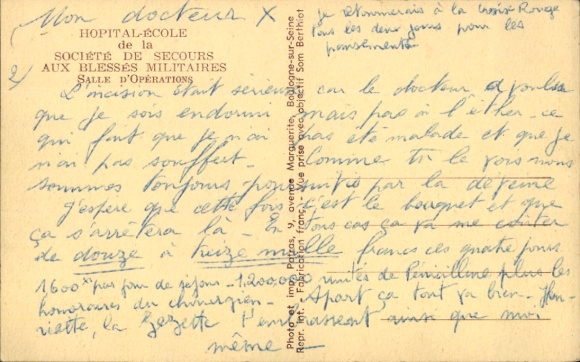 Mon docteur X
je retournerais à la Croix Rouge
tous les deux jours pour les
pansements
HOPITAL-ÉCOLE
de la
SOCIÉTÉ DE SECOURS
AUX BLESSÉS MILITAIRES
SALLE D'OPÉRATIONS
2/
L'incision était sérieuse car le docteur a voulu
que je sois endormi mais pas à l'ether - ce
qui fait que je n'ai pas été malade et que je
n'ai pas souffert - Comme tu le vois nous
sommes toujours poursuivis par la déveine
J'espère que cette fois c'est le bouquet et que
ça s'arrêtera là - En tous cas ça va me coûter
de douze à treize mille francs ces quatre jours
1600 par jour de séjour - 1.200.000 unités de Penicilline plus les
honoraires du chirurgien - Apart ça tout va bien - Hen-
riette, la Zezette t'embrassent ainsi que moi
même -
Photo et imp. Patras, 9, avenue Marguerite, Boulogne-sur-Seine
Repr. int. - Fabrication franç. - Vue prise avec objectif Som Berthiot